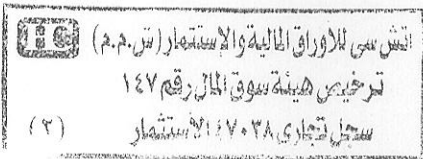 HC
اتش سى للاوراق المالية والإستثمار (ش.م.م)
ترخيص هيئة سوق المال رقم ١٤٧
سجل تجارى ٤٧٠٣٨ الأستثمار (٢)